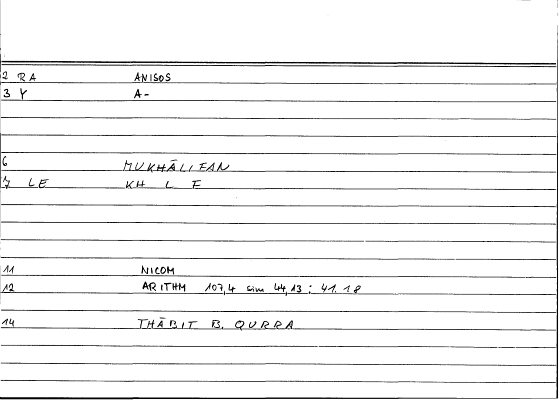 2 RA ANISOS
3 Y A-
6 MUKHĀLIFAN
7 LE KH L F
11 NICOM
12 ARITHM 107,4 sim 44,13 ; 41.18
14 THĀBIT B. QURRA